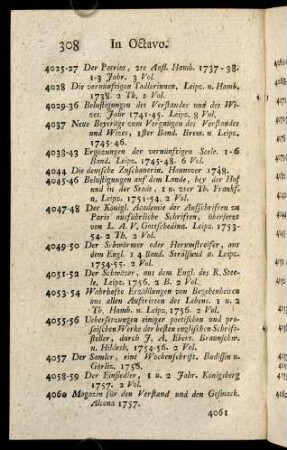 308 In Octavo.
4025-27 Der Patriot, 2te Aufl. Hamb. 1737-38.
1-3 Jahr. 3 Vol.
4028 Die vernünftigen Tadlerinnen. Leipz. u. Hamb.
1738. 2 Th. 1 Vol.
4029-36 Belustigungen des Verstandes und des Wi-
zes. Jahr 1741-45. Leipz. 8 Vol.
4037 Neue Beyträge zum Vergnügen des Verstandes
und Witzes, 1ster Band. Brem. u. Leipz.
1745-46.
4038-43 Ergözungen der vernünftigen Seele. 1-6
Band. Leipz. 1745-48. 6 Vol.
4044 Die deutsche Zuschauerin. Hannover 1748.
4045-46 Belustigungen auf dem Lande, bey der Hof
und in der Stadt, 1 u. 2ter Th. Frankf.
u. Leipz. 1751-54. 2 Vol.
4047-48 Der Königl. Academie der Aufschriften zu
Paris ausführliche Schriften, übersetzt
von L. A. V. Gottschedinn. Leipz. 1753-
54. 2 Th. 2 Vol.
4049-50 Der Schwärmer oder Herumstreifer, aus
dem Engl. 1 4 Band. Stralsund u. Leipz.
1754-55. 2 Vol.
4051-52 Der Schwätzer, aus dem Engl. des R. Stee-
le. Leipz. 1756. 2 B. 2 Vol.
4053-54 Wahrhafte Erzählungen von Begebenheiten
aus allen Auftritten des Lebens. 1 u. 2
Th. Hamb. u. Leipz. 1756. 2 Vol.
4055-56 Uebersetzungen einiger poetischen und pro-
saischen Werke der besten englischen Schrift-
steller, durch J. A. Ebert. Braunschw.
u. Hildesh. 1754-56. 2 Vol.
4057 Der Samler, eine Wochenschrift. Budissin u.
Görliz. 1756.
4058-59 Der Einsiedler, 1 u. 2 Jahr. Königsberg
1757. 2 Vol.
4060 Magazin für den Verstand und den Geschmack.
Altona 1757.
4061